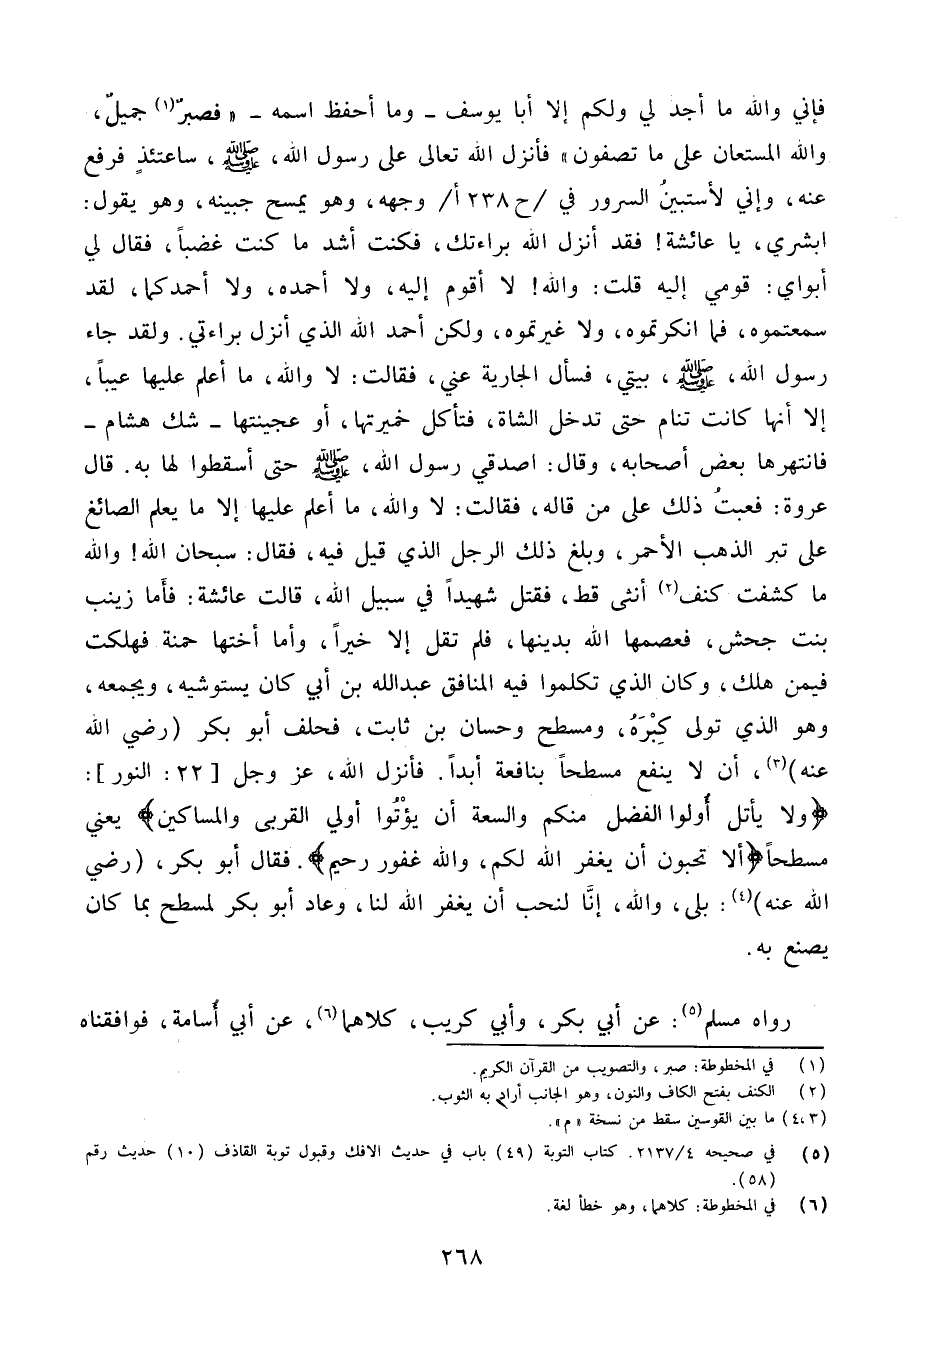 فإني والله ما أجد لي ولكم إلا أبا يوسف ـ وما أحفظ اسمه ـ « فصبرٌ(١) جميلٌ،
والله المستعان على ما تصفون» فأنزل الله تعالى على رسول الله، ﷺ، ساعتئذٍ فرفع
عنه، وإني لأستبينُ السرور في /ح٢٣٨ أ/ وجهه، وهو يمسح جبينه، وهو يقول:
ابشري، يا عائشة! فقد أنزل الله براءتك، فكنت أشد ما كنت غضباً، فقال لي
أبواي: قومي إليه قلت: والله! لا أقوم إليه، ولا أحمده، ولا أحمدكما، لقد
سمعتموه، فما انكرتموه، ولا غيرتموه، ولكن أحمد الله الذي أنزل براءتي. ولقد جاء
رسول الله، ﷺ، بيتي، فسأل الجارية عني، فقالت: لا والله، ما أعلم عليها عيباً،
إلا أنها كانت تنام حتى تدخل الشاة، فتأكل خميرتها، أو عجينتها ـ شك هشام ـ
فانتهرها بعض أصحابه، وقال: اصدقي رسول الله، ﷺ حتى أسقطوا لها به. قال
عروة: فعبتُ ذلك على من قاله، فقالت: لا والله، ما أعلم عليها إلا ما يعلم الصائغ
على تبر الذهب الأحمر، وبلغ ذلك الرجل الذي قيل فيه، فقال: سبحان الله! والله
ما كشفت كنف(٢) أنثى قط، فقتل شهيداً في سبيل الله، قالت عائشة: فأما زينب
بنت جحش، فعصمها الله بدينها، فلم تقل إلا خيراً، وأما أختها حمنة فهلكت
فيمن هلك، وكان الذي تكلموا فيه المنافق عبدالله بن أبي كان يستوشيه، ويجمعه،
وهو الذي تولى كِبْرَهُ، ومسطح وحسان بن ثابت، فحلف أبو بكر (رضي الله
عنه)(٣)، أن لا ينفع مسطحاً بنافعة أبداً. فأنزل الله، عز وجل [٢٢: النور]:
﴿ولا يأتل أُولوا الفضل منكم والسعة أن يؤْتُوا أولي القربى والمساكين﴾ يعني
مسطحاً ﴿ألا تحبون أن يغفر الله لكم، والله غفور رحيم﴾. فقال أبو بكر، (رضي
الله عنه)(٤): بلى، والله، إنَّا لنحب أن يغفر الله لنا، وعاد أبو بكر لمسطح بما كان
يصنع به.
رواه مسلم(٥): عن أبي بكر، وأبي كريب، كلاهما(٦)، عن أبي أُسامة، فوافقناه
(١) في المخطوطة: صبر، والتصويب من القرآن الكريم.
(٢) الكنف بفتح الكاف والنون، وهو الجانب أراد به الثوب.
(٤،٣) ما بين القوسين سقط من نسخة «م».
(٥) في صحيحه ٢١٣٧/٤. كتاب التوبة (٤٩) باب في حديث الافك وقبول توبة القاذف (١٠) حديث رقم
(٥٨).
(٦) في المخطوطة: كلاهما، وهو خطأ لغة.
٢٦٨